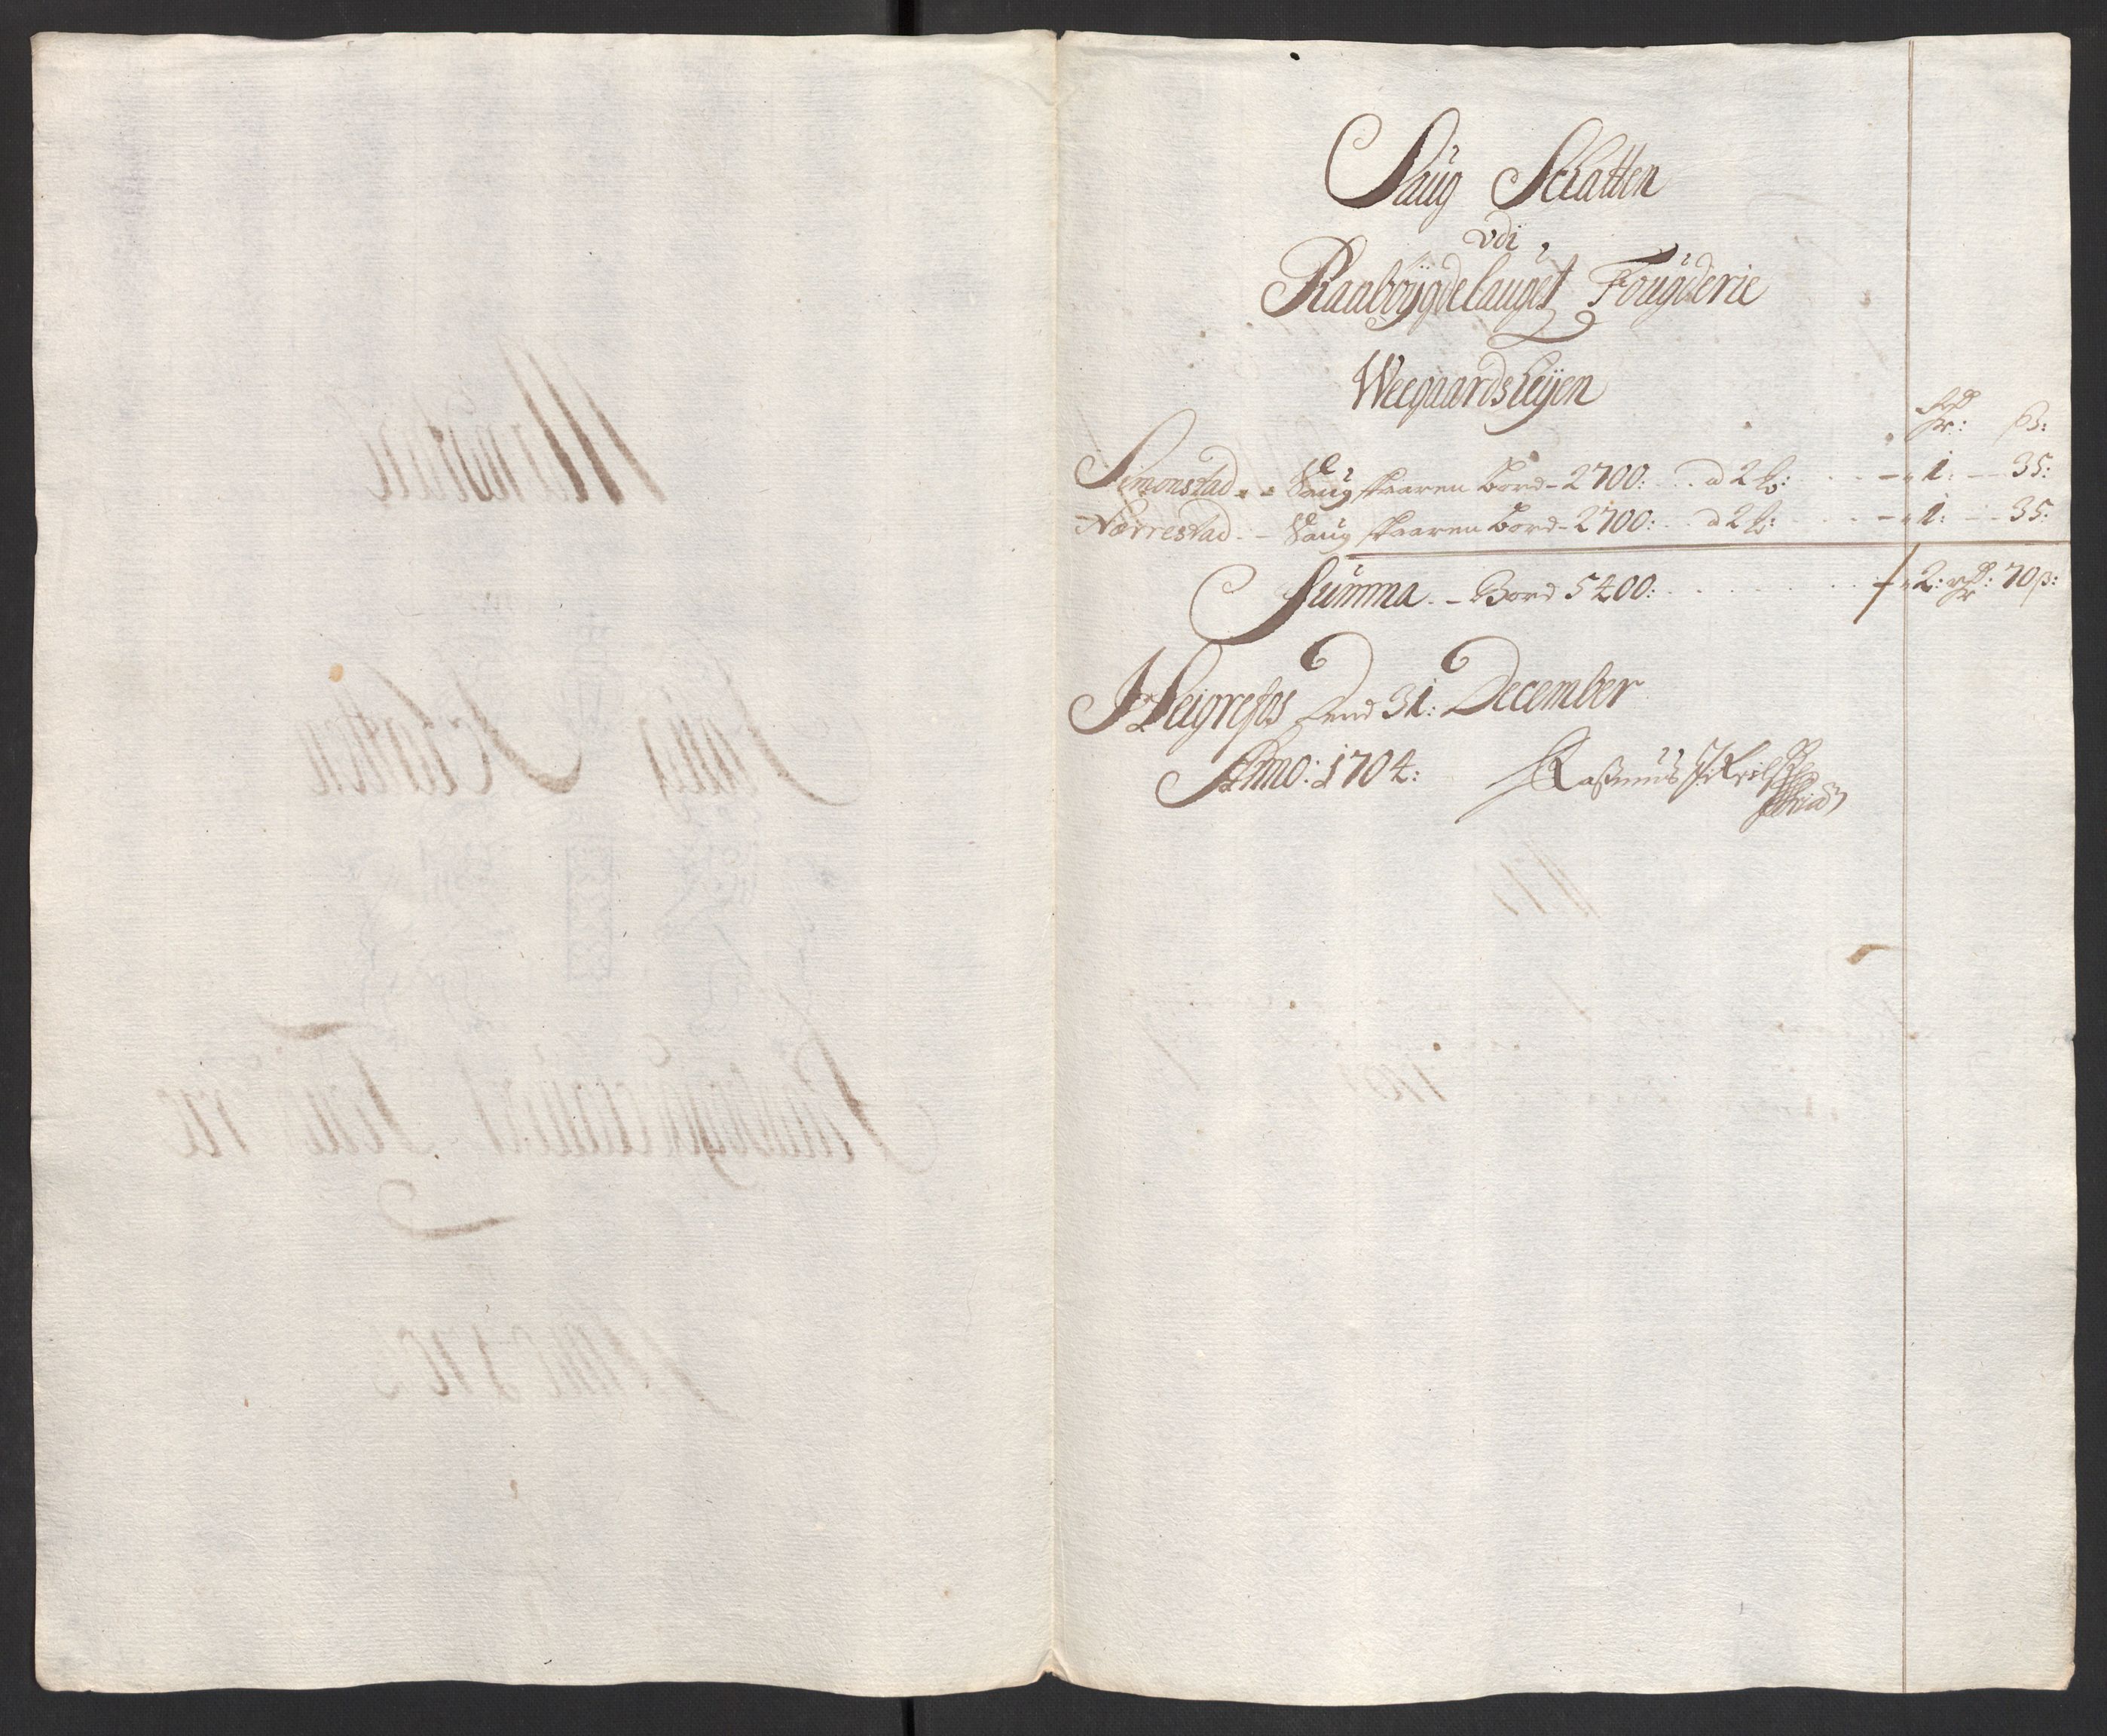 Saug Schatten
udi
Raabøygdelauget Fougderie
Weegaardsheyen
Rdr: ß:
Simonstad - Saug skaaren Bord - 2700: a 2 ß: 1: 35:
Nærrestad - Saug skaaren Bord - 2700: a 2 ß: 1: 35:
Summa - Bord 5400: 2: rdr: 70 ß:
Heigrefos dend 31: December
Anno: 1704: Rasmus